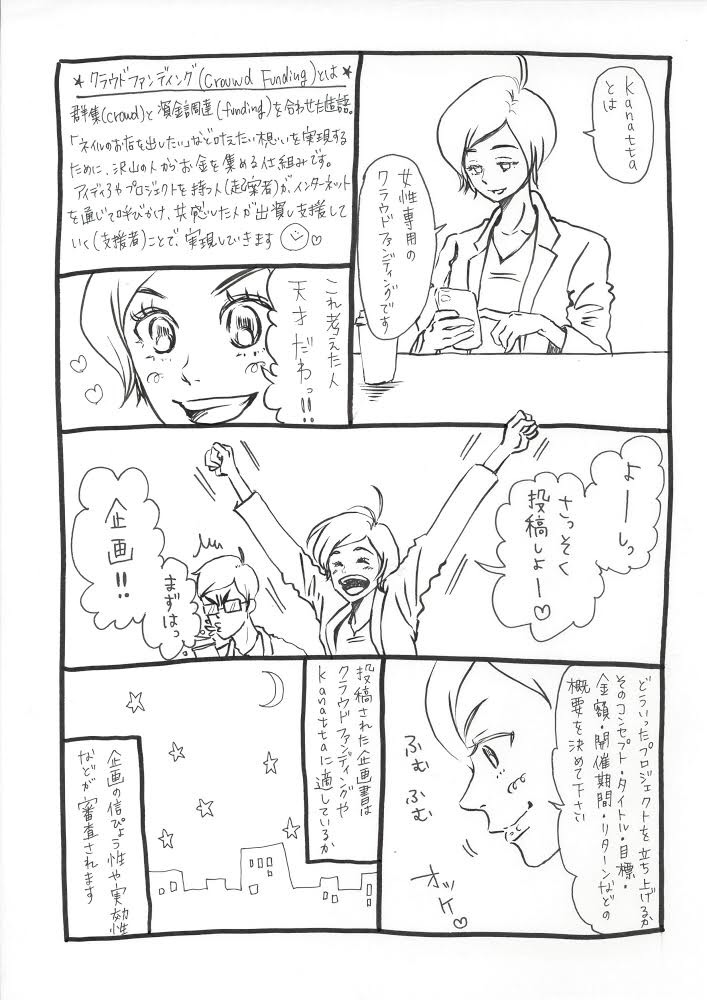 kanatta
とは
女性専用の
クラウドファンディングです
★クラウドファンディング(Crouwd Funding)とは★
群集(crowd)と資金調達(funding)を合わせた造語。
「ネイルのお店を出したい」など叶えたい想いを実現する
ために、沢山の人からお金を集める仕組みです。
アイディアやプロジェクトを持つ人(起案者)が、インターネット
を通じて呼びかけ、共感した人が出資し支援して
いく(支援者)ことで、実現していきます
これ考えた人
天才だわっ!!
よーしっ
さっそく
投稿しよー♡
まずはっ
企画!!
どういったプロジェクトを立ち上げるか
そのコンセプト・タイトル・目標・
金額・開催期間・リターンなどの
概要を決めて下さい
ふむふむ
オッケ♡
投稿された企画書は
クラウドファンディングや
kanattaに適しているか
企画の信ぴょう性や実効性
などが審査されます